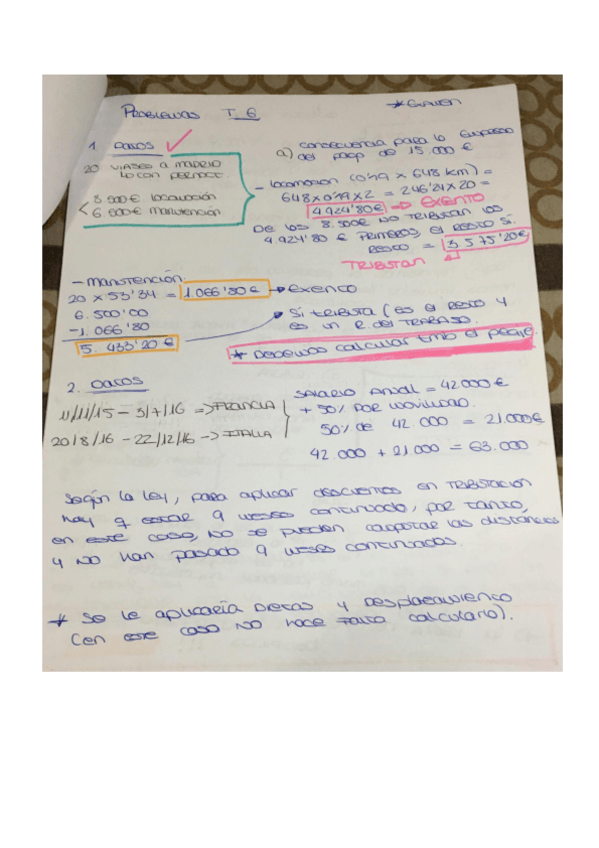 PROBLEMAS T 6
* EXAMEN
1. DATOS
20 VIAJES A MADRID
NO CON PERNOCT.
8.500€ LOCOMOCIÓN
6.500€ MANUTENCIÓN
a) CONSECUENCIA PARA LA EMPRESA
del pago de 15.000 €
- LOCOMOCIÓN (0'19 x 648 km) =
648 x 0'19 x 2 = 246'24 x 20 =
4.924'80€ → EXENTO
DE LOS 8.500€ NO TRIBUTAN LOS
4.924'80 € PRIMEROS, el RESTO SÍ.
RESTO = 3.575'20€
TRIBUTAN
- MANUTENCIÓN:
20 x 53'34 = 1.066'80€ → EXENTO
6.500'00
-1.066'80
5.433'20 €
SÍ TRIBUTA (ES EL RESTO Y
ES UN R. DEL TRABAJO.
* DEBEMOS CALCULAR TMB EL PEAJE.
2. DATOS
1/11/15 - 3/7/16 => FRANCIA
20/8/16 - 22/12/16 -> ITALIA
SALARIO ANUAL = 42.000 €
+ 50% POR MOVILIDAD.
50% de 42.000 = 21.000€
42.000 + 21.000 = 63.000
Según la ley, para aplicar descuentos en TRIBUTACIÓN
hay q estar 9 meses continuado, por tanto,
en este caso, NO se pueden las distancias
y NO han pasado 9 meses continuados.
* Se le aplicaría Dietas y Desplazamiento
(en este caso NO hace falta calcularlo).